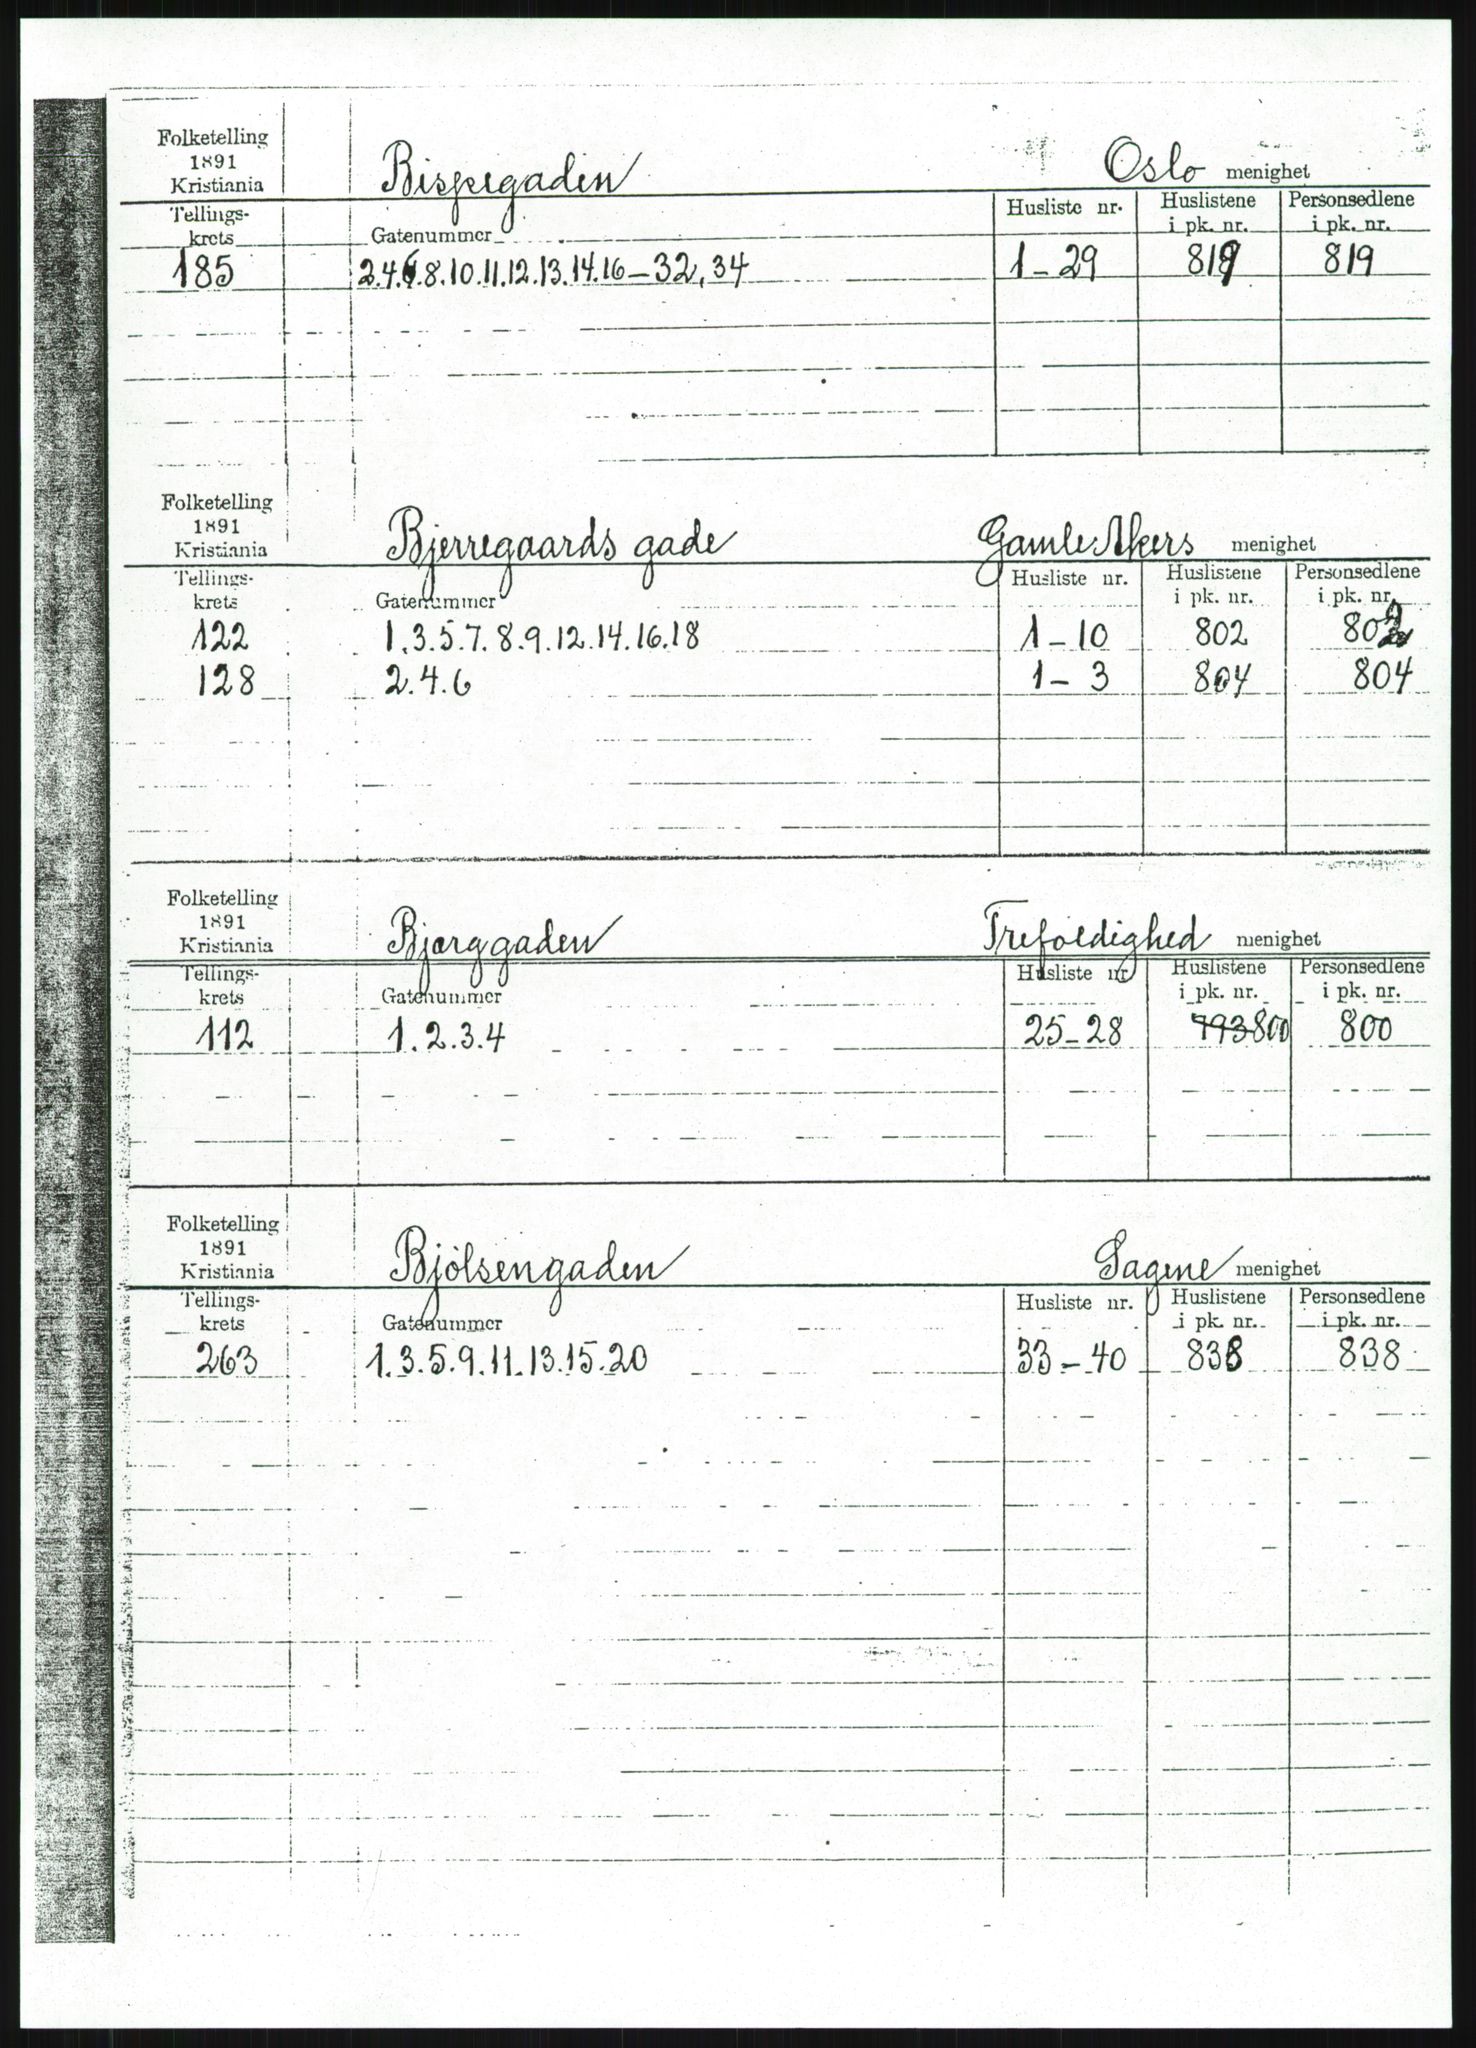 Folketelling
1891
Kristiania
Bispegaden
Oslo menighet
Tellings-
krets
Gatenummer
Husliste nr.
Huslistene
i pk. nr.
Personsedlene
i pk. nr.
185 2.4.6.8.10.11.12.13.14.16-32,34 1-29 819 819
Folketelling
1891
Kristiania
Bjerregaards gade
Gamle Akers menighet
Tellings-
krets
Gatenummer
Husliste nr.
Huslistene
i pk. nr.
Personsedlene
i pk. nr.
122 1.3.5.7.8.9.12.14.16.18 1-10 802 802
128 2.4.6 1-3 804 804
Folketelling
1891
Kristiania
Bjærggaden
Trefoldighed menighet
Tellings-
krets
Gatenummer
Husliste nr
Huslistene
i pk. nr.
Personsedlene
i pk. nr.
112 1.2.3.4 25-28 793 800 800
Folketelling
1891
Kristiania
Bjölsengaden
Sagene menighet
Tellings-
krets
Gatenummer
Husliste nr.
Huslistene
i pk. nr.
Personsedlene
i pk. nr.
263 1.3.5.9.11.13.15.20 33-40 838 838